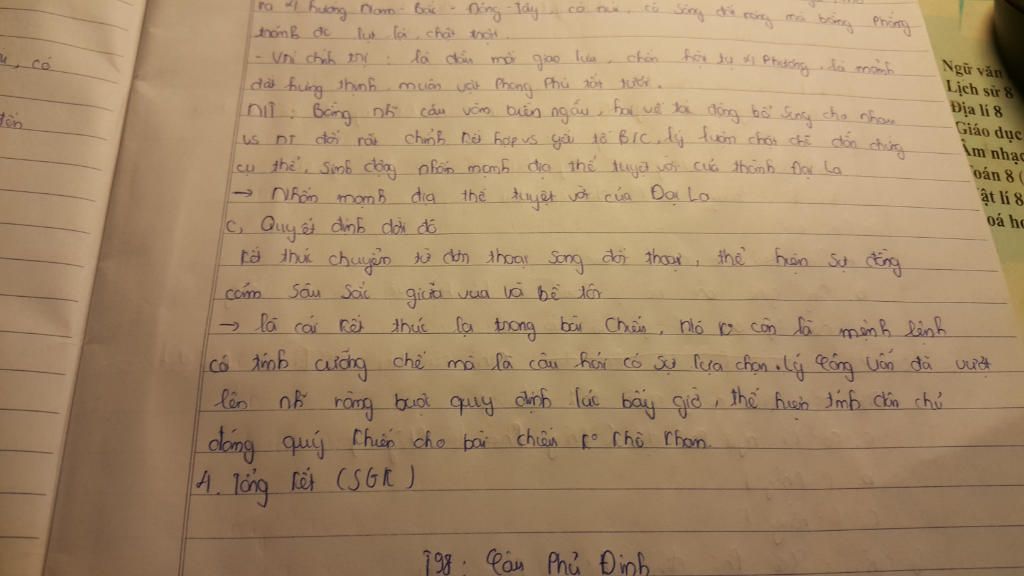 ra 4 hướng Nam - Bắc - Đông - Tây, có núi, có sông đất rộng mà bằng phẳng
tránh đc lụt lội, chật trội.
- Vị chính trị : là đầu mối giao lưu, chốn hội tụ 4 phương, là mảnh
đất hưng thịnh, muôn vật phong phú tốt tươi.
NT : Bằng n~ câu văn biền ngẫu, hai vế đối bổ sung cho nhau
vs NT đối rất chỉnh kết hợp vs yếu tố B/C, lý luận chặt chẽ dẫn chứng
cụ thể, sinh động nhấn mạnh địa thế tuyệt vời của thành Đại La
→ Nhấn mạnh địa thế tuyệt vời của Đại La
c, Quyết định dời đô
Kết thúc chuyển từ đơn thoại sang đối thoại, thể hiện sự đồng
cảm sâu sắc giữa vua và bề tôi
→ là cái kết thúc lạ trong bài Chiếu, nó k° còn là mệnh lệnh
có tính cưỡng chế mà là câu hỏi có sự lựa chọn. Lý Công Uẩn đã vượt
lên n~ ràng buộc quy định lúc bấy giờ, thể hiện tính dân chủ
đáng quý khiến cho bài chiếu k° khô khan.
4. Tổng kết (SGK)
T98 : Câu Phủ Định
, có
Ngữ văn
Lịch sử 8
Địa lí 8
Giáo dục
Âm nhạc
oán 8 (
ật lí 8
oá họ